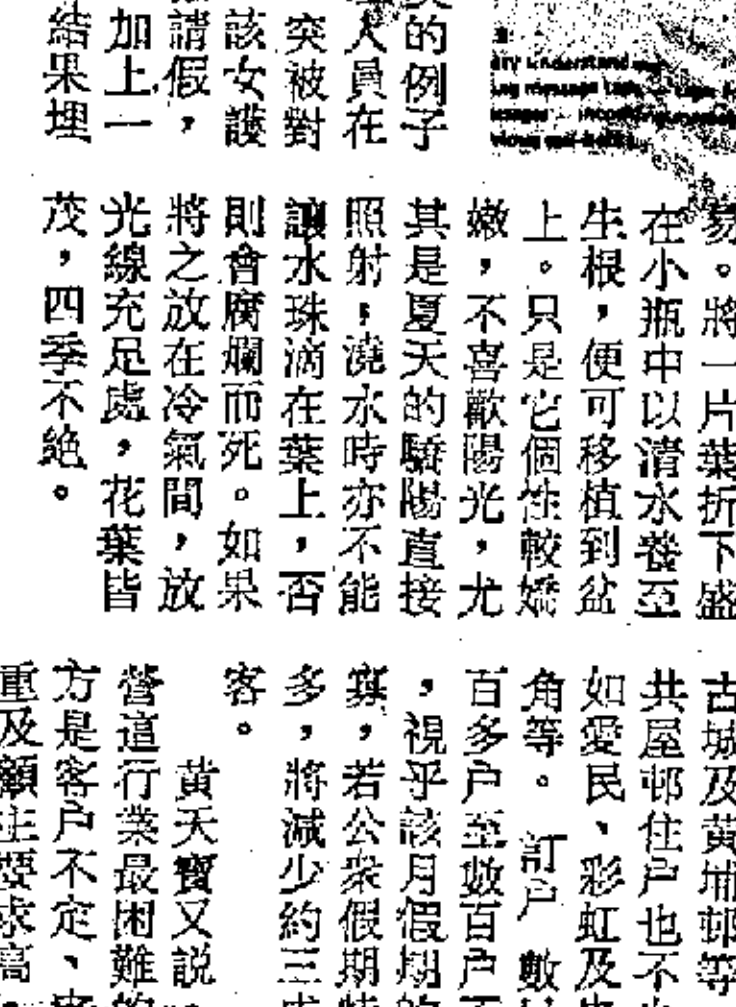 的例子
人員在
突被對
該女護
請假，
加上一
結果埋
ary understand
易。將一片葉折下盛
在小瓶中以清水養至
生根，便可移植到盆
上。只是它個性較嬌
嫩，不喜歡陽光，尤
其是夏天的驕陽直接
照射，澆水時亦不能
讓水珠滴在葉上，否
則會腐爛而死。如果
將之放在冷氣間，放
光線充足處，花葉皆
茂，四季不絕。
古城及黃埔邨等
共屋邨住戶也不
如愛民、彩虹及
角等。訂戶數
百多戶至數百戶
，視乎該月假期的
寡，若公眾假期特
多，將減少約三成
客。
黃天寶又說
營這行業最困難的
方是客戶不定、
重及顧主要求高